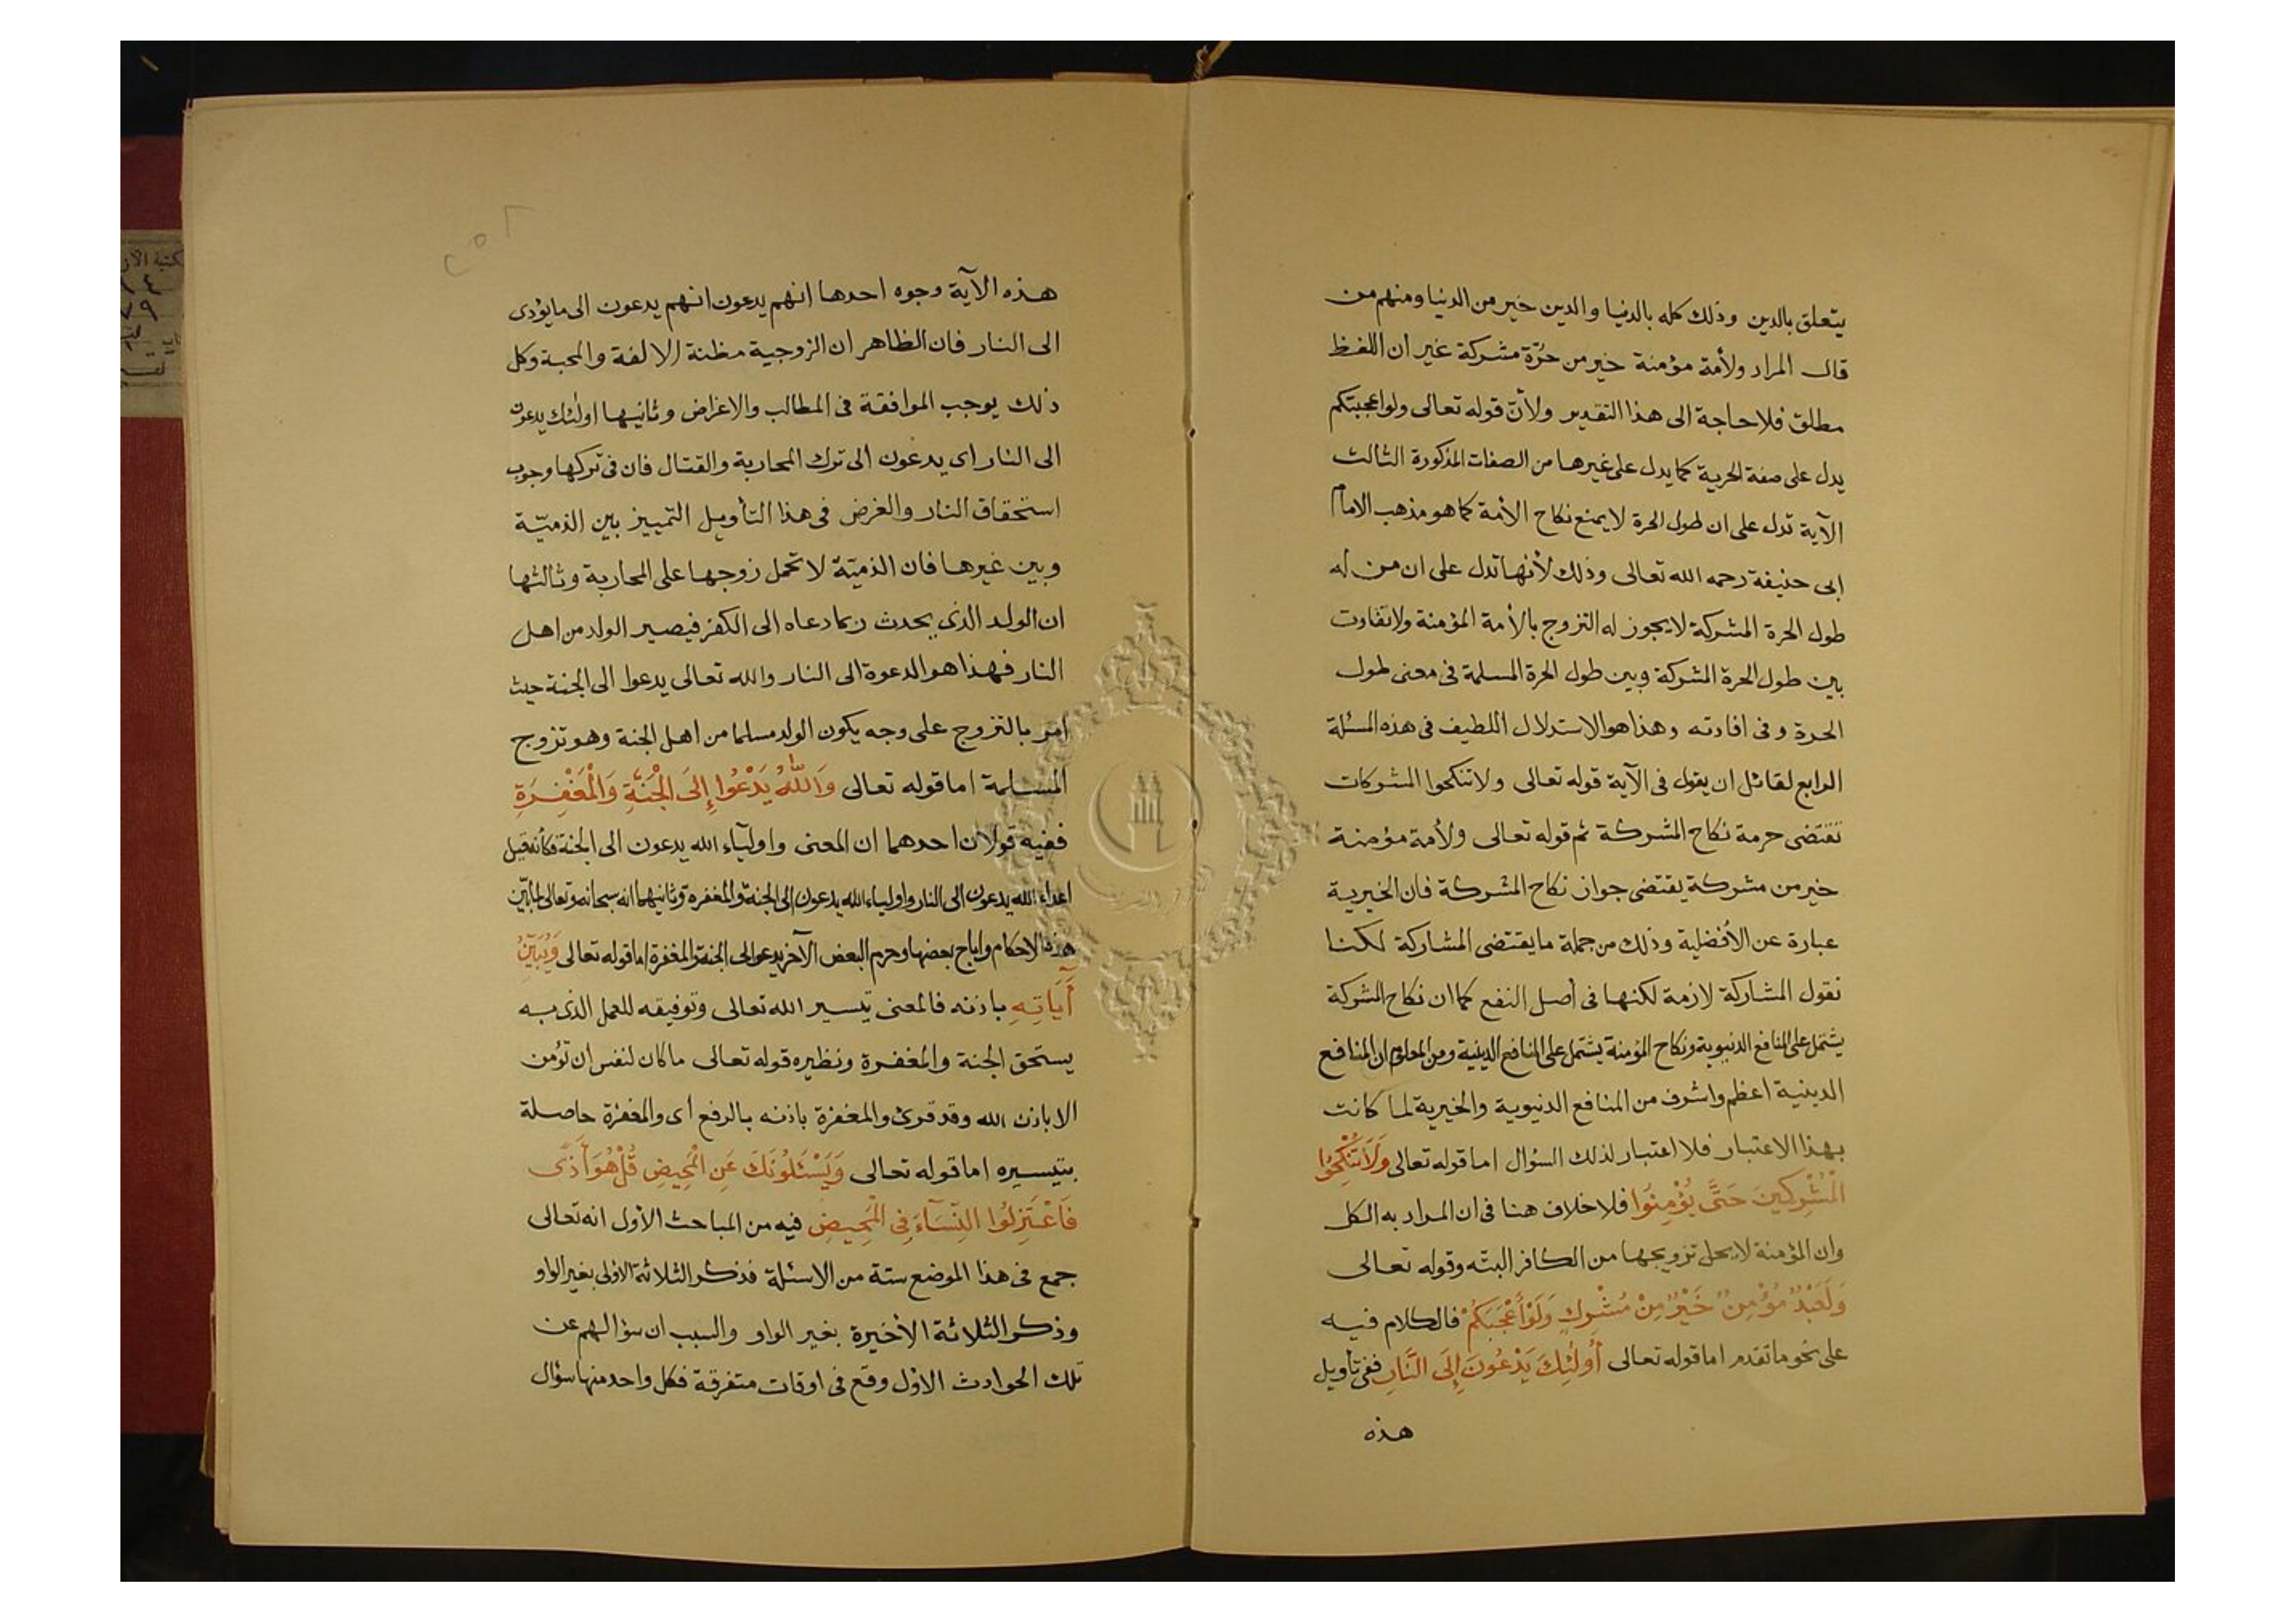 يتعلق بالدين وذلك كله بالدنيا والدين خير من الدنيا ومنهم من
قال المراد ولأمة مؤمنة خير من حرّة مشركة غير ان اللفظ
مطلق فلا حاجة الى هذا التقدير ولأنّ قوله تعالى ولو اعجبتكم
يدل على صفة الحرية كما يدل على غيرها من الصفات المذكورة الثالث
الآية تدل على ان طول الحرة لا يمنع نكاح الأمة كما هو مذهب الامام
ابى حنيفة رحمه الله تعالى وذلك لأنها تدل على ان من له
طول الحرة المشركة لا يجوز له التزوج بالأمة المؤمنة ولا تفاوت
بين طول الحرة المشركة وبين طول الحرة المسلمة فى معنى طول
الحرة وفى افادته وهذا هو الاستدلال اللطيف فى هذه المسئلة
الرابع لقائل ان يقول فى الآية قوله تعالى ولا تنكحوا المشركات
تقتضى حرمة نكاح المشركة ثم قوله تعالى ولأمة مؤمنة
خير من مشركة يقتضى جواز نكاح المشركة فان الخيرية
عبارة عن الأفضلية وذلك من جملة ما يقتضى المشاركة لكنا
نقول المشاركة لازمة لكنها فى أصل النفع كما ان نكاح المشركة
يشتمل على المنافع الدنيوية ونكاح المؤمنة يشتمل على المنافع الدينية ومن المعلوم ان المنافع
الدينية اعظم واشرف من المنافع الدنيوية والخيرية لما كانت
بهذا الاعتبار فلا اعتبار لذلك السؤال اما قوله تعالى وَلَا تُنْكِحُوا
الْمُشْرِكِينَ حَتَّى يُؤْمِنُوا فلا خلاف هنا فى ان المراد به الكل
وان المؤمنة لا يحل تزويجها من الكافر البته وقوله تعالى
وَلَعَبْدٌ مُؤْمِنٌ خَيْرٌ مِنْ مُشْرِكٍ وَلَوْ أَعْجَبَكُمْ فالكلام فيه
على نحو ما تقدم اما قوله تعالى أُولَئِكَ يَدْعُونَ إِلَى النَّارِ ففى تأويل
هذه
هذه الآية وجوه احدها انهم يدعون انهم يدعون الى ما يؤدى
الى النار فان الظاهر ان الزوجية مظنة الالفة والمحبة وكل
ذلك يوجب الموافقة فى المطالب والاغراض وثانيها اولئك يدعون
الى النار اى يدعون الى ترك المحاربة والقتال فان فى تركها وجوب
استحقاق النار والغرض فى هذا التأويل التمييز بين الذميّة
وبين غيرها فان الذميّة لا تحمل زوجها على المحاربة وثالثها
ان الولد الذى يحدث ربما دعاه الى الكفر فيصير الولد من اهل
النار فهذا هو الدعوة الى النار والله تعالى يدعوا الى الجنة حيث
امر بالتزوج على وجه يكون الولد مسلما من اهل الجنة وهو تزوج
المسلمة اما قوله تعالى وَاللَّهُ يَدْعُوا إِلَى الْجَنَّةِ وَالْمَغْفِرَةِ
ففيه قولان احدهما ان المعنى واوليآء الله يدعون الى الجنة فكأنه قيل
اعداء الله يدعون الى النار واولياء الله يدعون الى الجنة والمغفرة وثانيهما انه سبحانه وتعالى لما بيّن
هذه الاحكام واباح بعضها وحرم البعض الآخر يدعو الى الجنة والمغفرة اما قوله تعالى وَيُبَيِّنُ
آيَاتِهِ باذنه فالمعنى تيسير الله تعالى وتوفيقه للعمل الذى به
يستحق الجنة والمغفرة ونظيره قوله تعالى ما كان لنفس ان تؤمن
الا باذن الله وقد قرئ والمغفرة باذنه بالرفع أى والمغفرة حاصلة
بتيسيره اما قوله تعالى وَيَسْئَلُونَكَ عَنِ الْمَحِيضِ قُلْ هُوَ أَذًى
فَاعْتَزِلُوا النِّسَآءَ فِى الْمَحِيضِ فيه من المباحث الأول انه تعالى
جمع فى هذا الموضع ستة من الاسئلة فذكر الثلاثة الاولى بغير الواو
وذكر الثلاثة الأخيرة بغير الواو والسبب ان سؤالهم عن
تلك الحوادث الأول وقع فى اوقات متفرقة فكل واحد منها سؤال